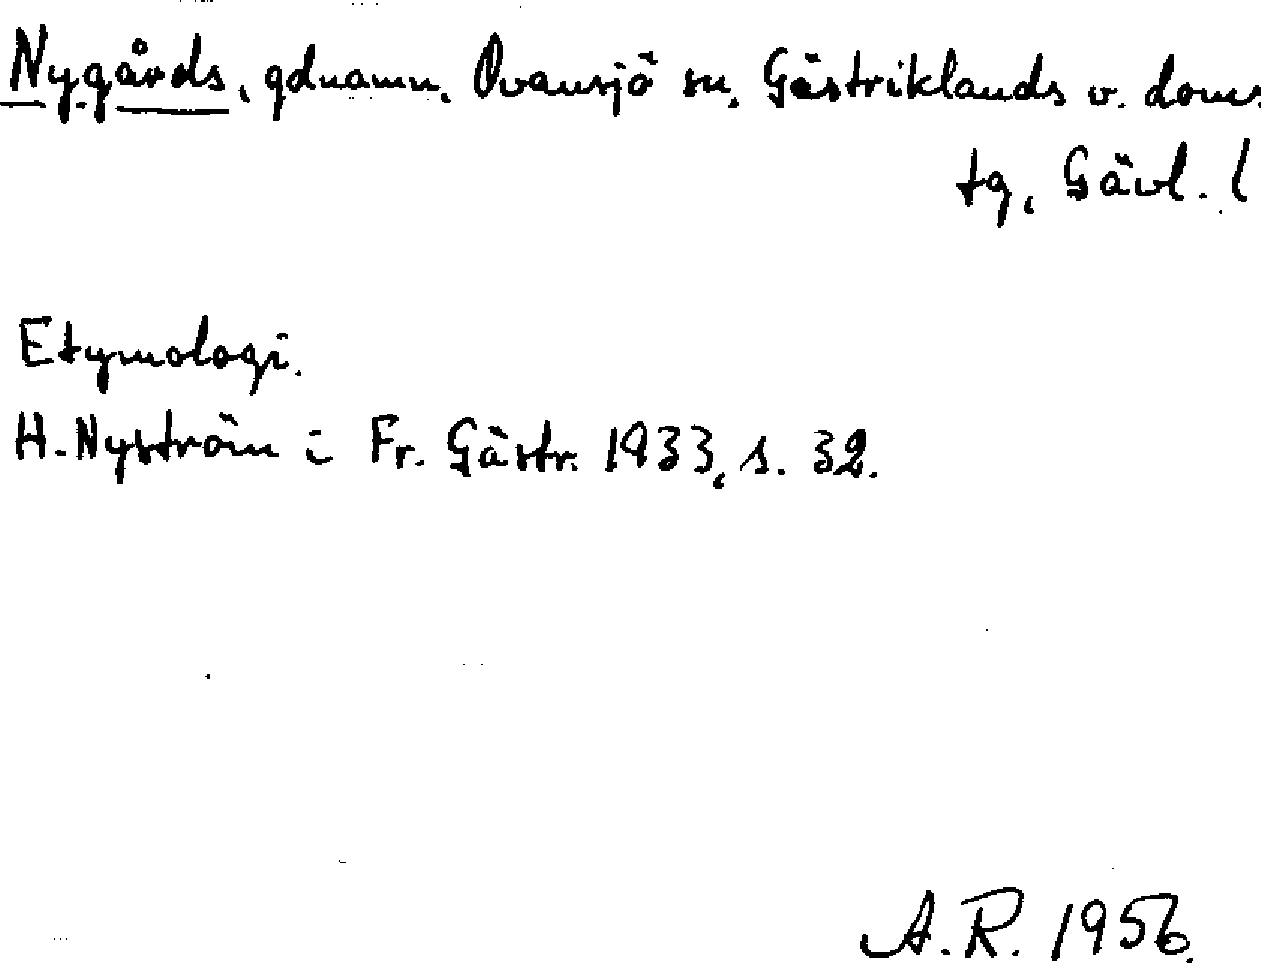 Nygårds, gdnamn. Ovansjö sn, Gästriklands v. doms
tg, Gävl. l
Etymologi.
H. Nyström i Fr. Gästr. 1933, s. 32.
A.R. 1956.